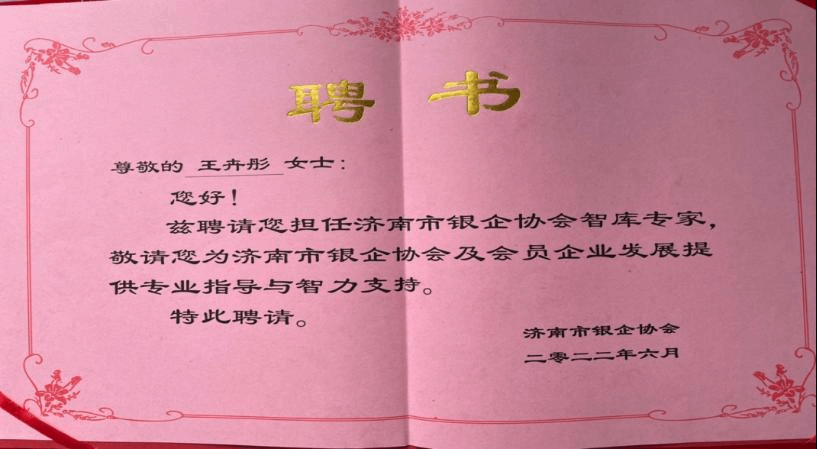 聘书
尊敬的 王卉彤 女士：
您好！
兹聘请您担任济南市银企协会智库专家，
敬请您为济南市银企协会及会员企业发展提
供专业指导与智力支持。
特此聘请。
济南市银企协会
二零二二年六月